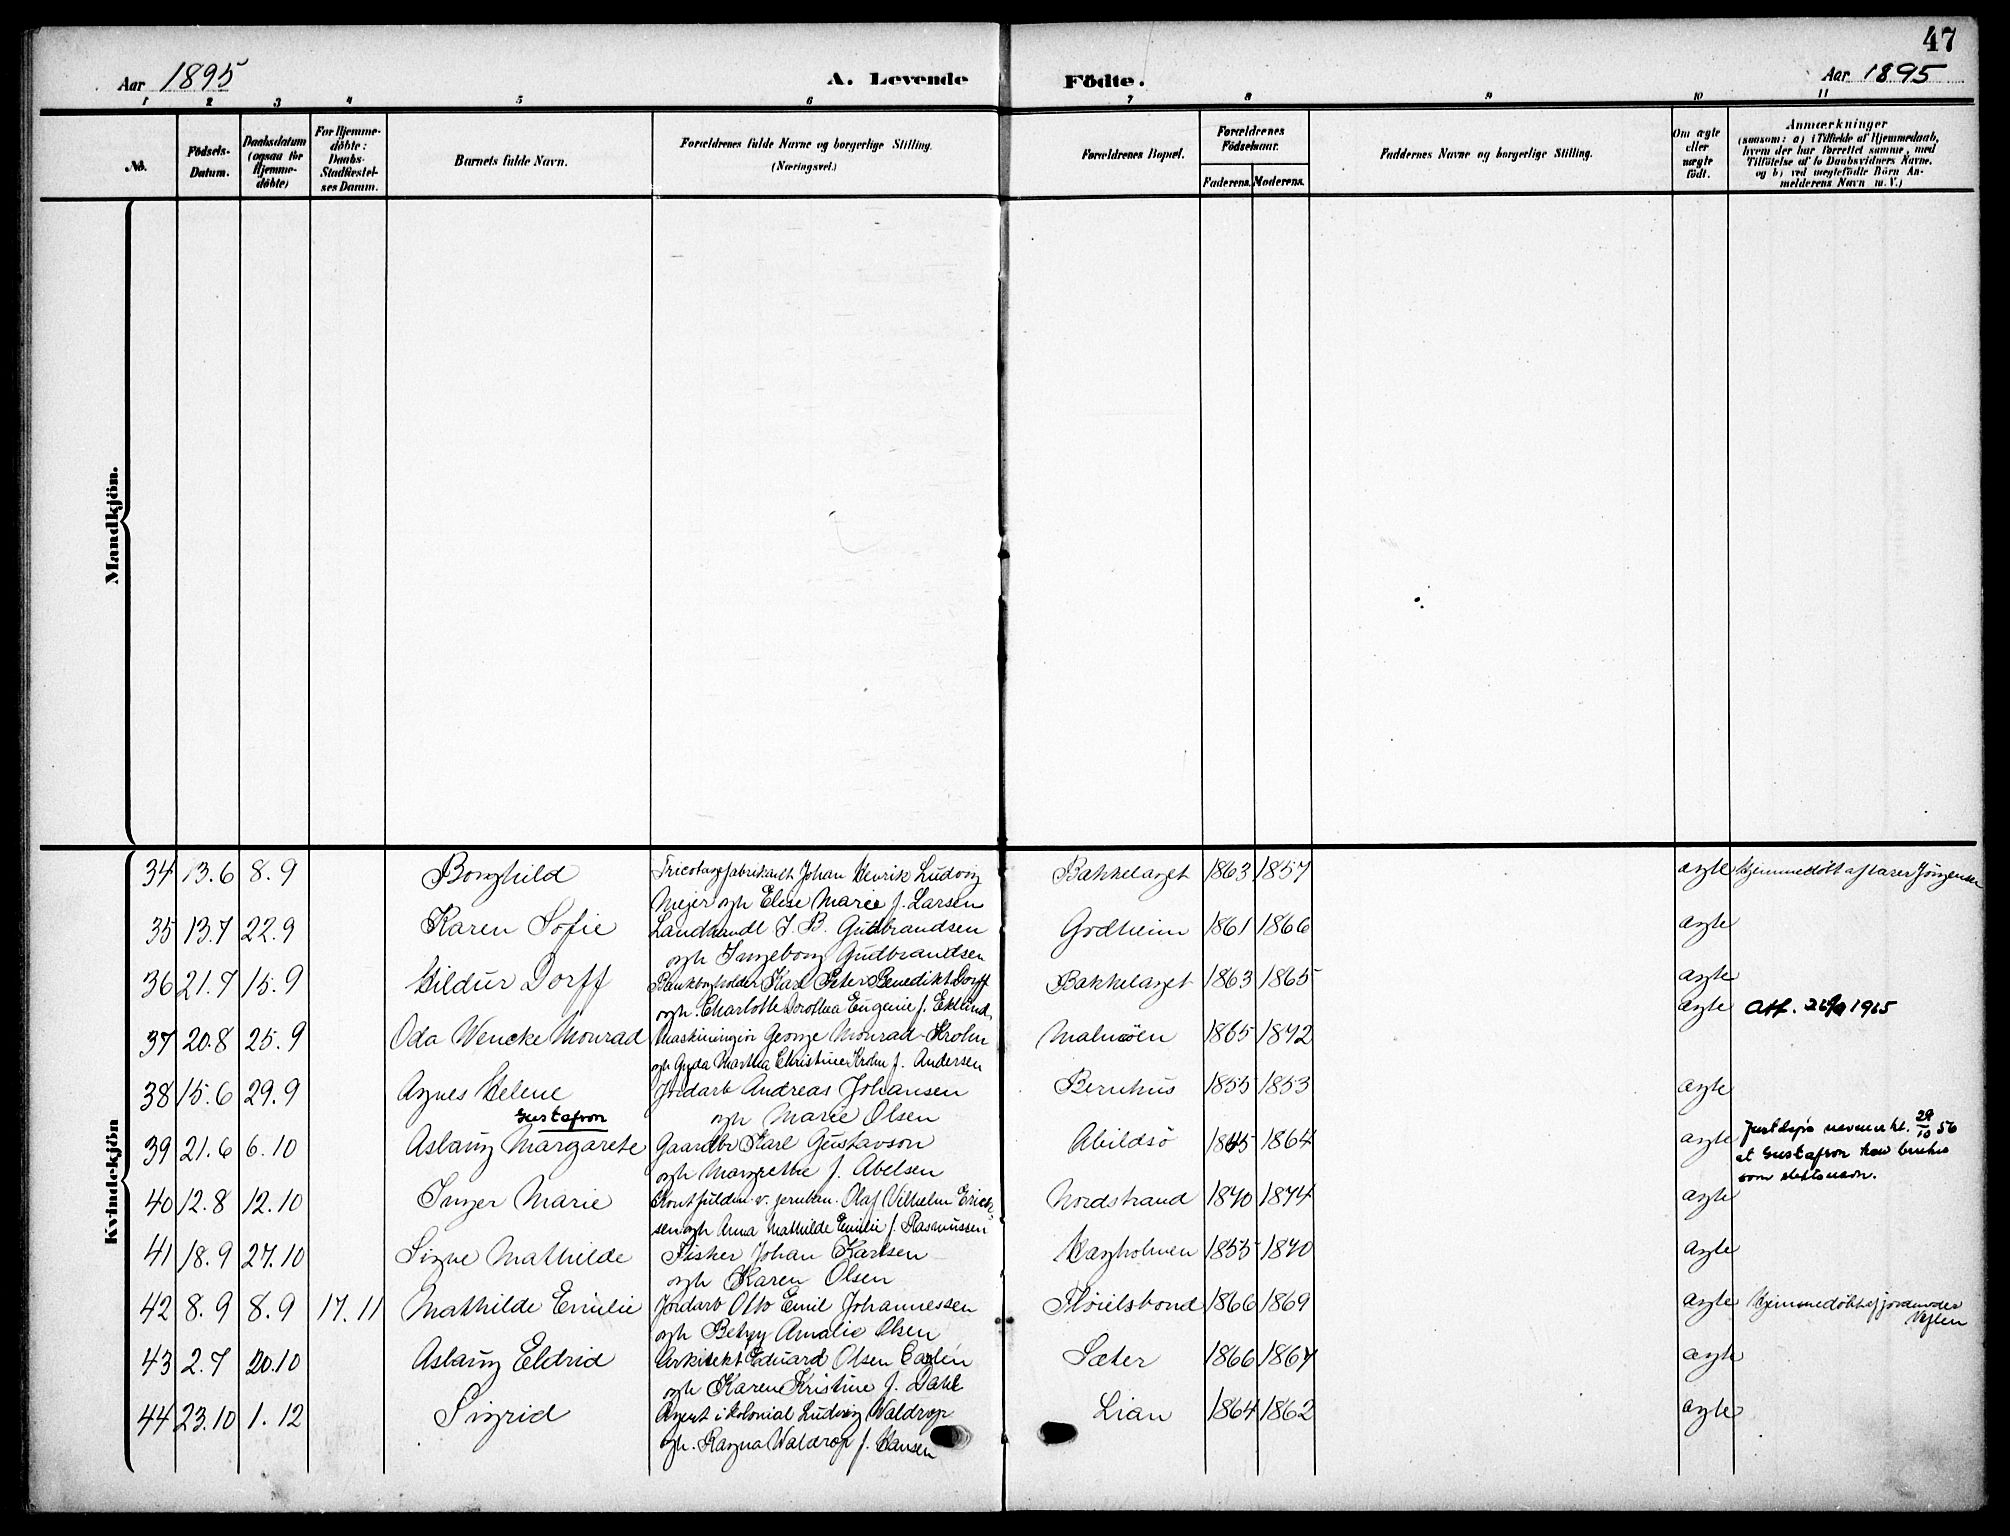 47
Aar 1895
A. Levende
Födte.
Aar 1895
1 2 3 4 5 6 7 8 9 10 11
No.
Födsels-
Datum.
Daabsdatum
(ogsaa for
Hjemme-
döbte)
For Hjemme-
döbte:
Daabs-
Stadfæstel-
ses Datum.
Barnets fulde Navn.
Forældrenes fulde Navne og borgerlige Stilling.
(Næringsvei.)
Forældrenes Bopæl.
Forældrenes
Födselsaar.
Faderens. Moderens.
Faddernes Navne og borgerlige Stilling.
Om ægte
eller
uægte
født.
Anmærkninger
(saasom: a) i Tilfælde af Hjemmedaab,
hvem der har forrettet samme, med
Tilföielse af to Daabsvidners Navne.
og b) ved uægtefödte Börn An-
melderens Navn m. V.)
Mandkjön.
Kvindekjön
34 13.6 8.9 Borghild Tricotagefabrikant Johan Henrik Ludvig Bækkelaget 1863 1857 ægte Hjemmedøbt af Jørgensen
Mejer ogh Elise Marie f. Larsen
35 13.7 22.9 Karen Sofie Landhandl J. B. Gudbrandsen Godheim 1861 1866 ægte
ogh Ingeborg Gudbrandsen
36 21.7 15.9 Hildur Dorff Bankbogholder Karl Peter Benedikt Dorff Bækkelaget 1863 1865 ægte
ogh Charlotte Dorothea Eugenie f. Eklund ægte Att. 1915
37 20.8 25.9 Oda Wencke Monrad Maskiningiør George Monrad-Krohn Malmøen 1865 1872
ogh Gyda Martha Christine Krohn f. Andersen
38 15.6 29.9 Agnes Helene Jordarb Andreas Johansen Bernhus 1855 1853 ægte
ogh Marie Olsen
Gustafson
39 21.6 6.10 Aslaug Margarete Gaardbr Karl Gustavson Abildsø 1864 ægte Justdeps navnerkl. 29/10 56
ogh Margrethe f. Abelsen at Gustafson kan brukes
som slektsnavn.
40 12.8 12.10 Inger Marie Kontfuldm. v. jernban. Olaf Vilhelm Erich- Nordstrand 1870 1874 ægte
sen ogh Anna Mathilde Emilie f. Rasmussen
41 18.9 27.10 Signe Mathilde Fisker Johan Karlsen Hagholmen 1855 1870 ægte
ogh Karen Olsen
42 8.9 8.9 17.11 Mathilde Emilie Jordarb Otto Emil Johannessen Fløielsbond 1866 1869 ægte Hjemmedøbt af jordmoder
ogh Betzy Amalie Olsen
43 2.7 20.10 Aslaug Eldrid Arkitekt Eduard Olsen Sæter 1866 1867 ægte
ogh Karen Kristine f. Dahl
44 23.10 1.12 Sigrid Agent i kolonial Ludvig Waldrop Lian 1864 1862 ægte
ogh. Ragna Waldrop f. Hansen